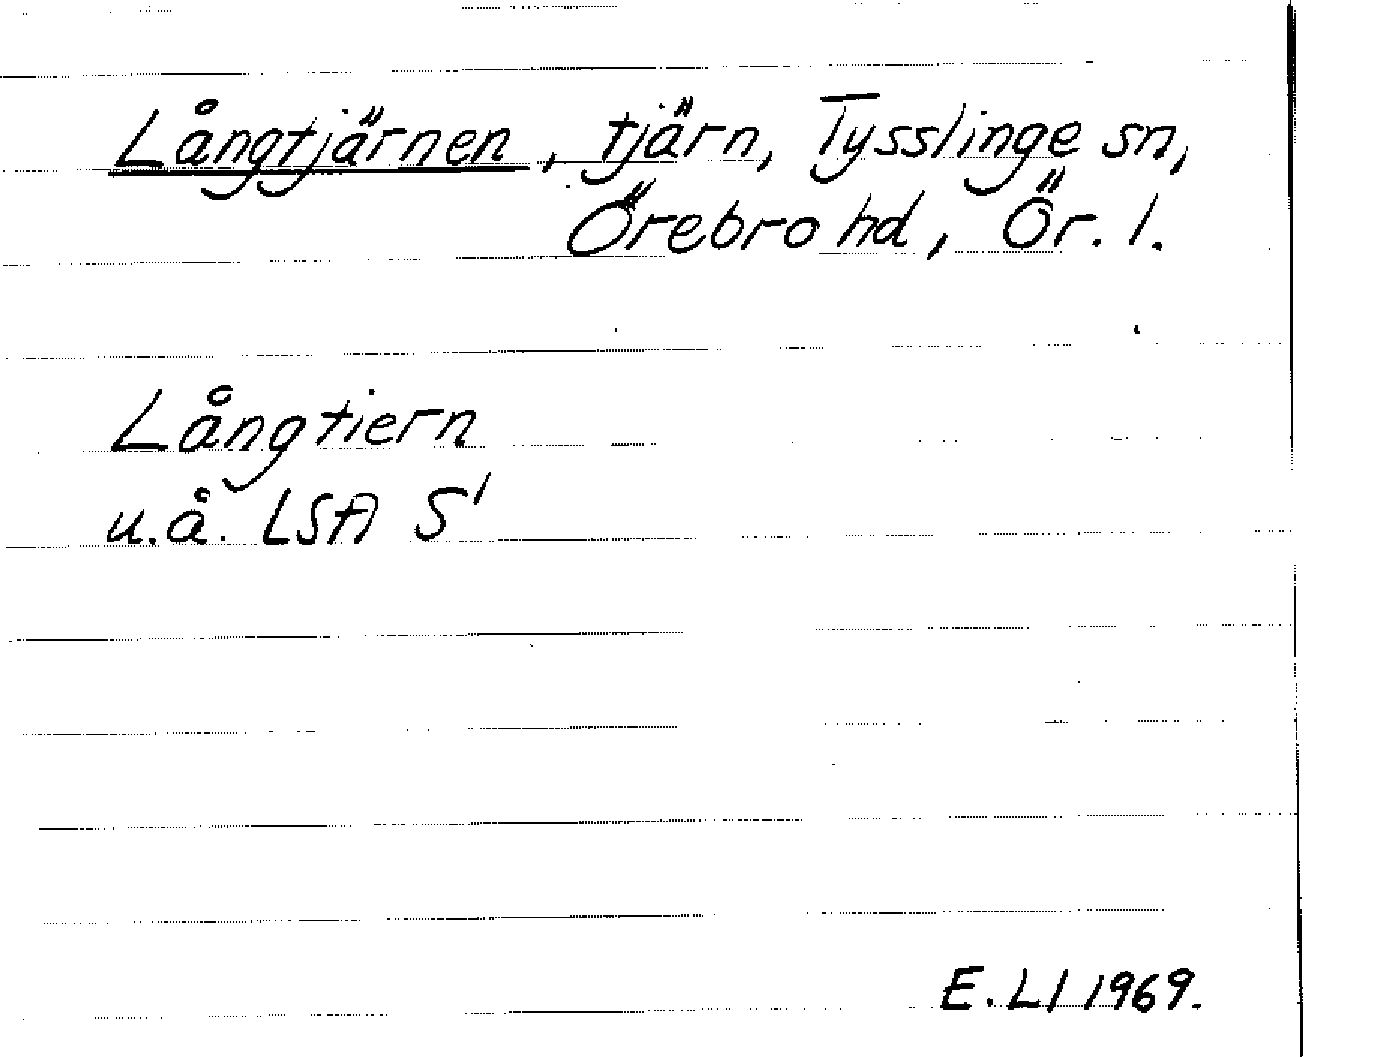 Långtjärnen, tjärn, Tysslinge sn,
Örebro hd, Ör. l.
Långtiern
u.å. LSA S'
E. Ll 1969.